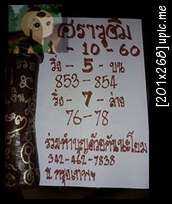 ศราวุธิม
1 - 10 - 60
วิ่ง - 5 - บน
853-854
วิ่ง - 7 - ล่าง
76-78
ร่วมทำบุญด้วยกันนะโยม
342-462-7838
[201x268] upic.me